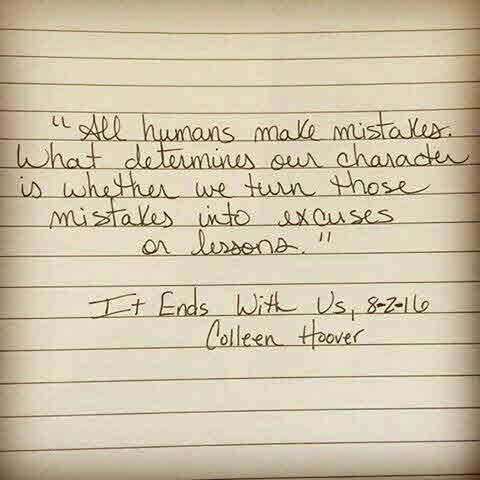 "All humans make mistakes.
What determines our character
is whether we turn those
mistakes into excuses
or lessons."
It Ends With Us, 8-2-16
Colleen Hoover